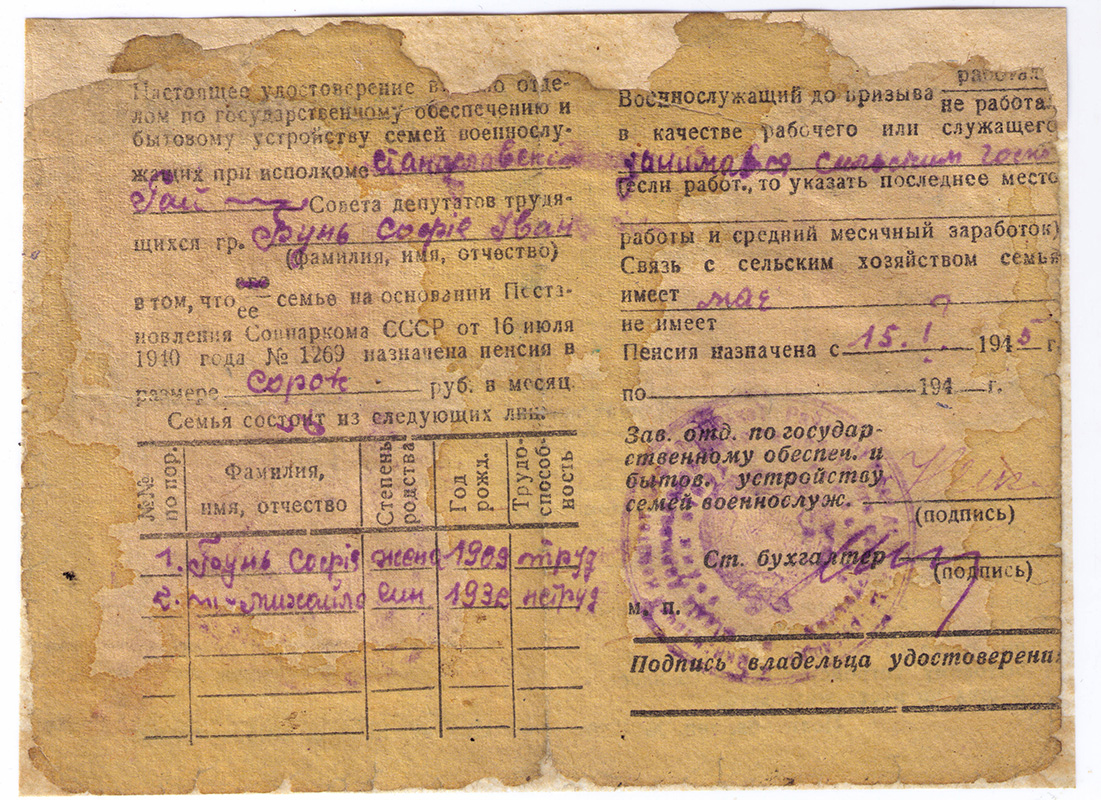 Настоящее удостоверение отде-
лом по государственному обеспечению и
бытовому устройству семей военнослу-
жащих при исполкоме Станиславский
Рай Совета депутатов трудя-
щихся гр. Бунь Софіе Іван
(фамилия, имя, отчество)
в том, что ее семье на основании Поста-
новления Совнаркома СССР от 16 июля
1940 года № 1269 назначена пенсия в
размере сорок руб. в месяц.
Семья состоит из следующих лиц:
№№ по пор. Фамилия, имя, отчество Степень родства Год рожд. Трудо-способ-ность
1. Бунь Софія жена 1909 труд
2. Михайло син 1932 нетруд
работал
Военнослужащий до призыва не работал
в качестве рабочего или служащего
занимався сильским госп
(если работ., то указать последнее место
работы и средний месячный заработок)
Связь с сельским хозяйством семья
имеет має
не имеет
Пенсия назначена с 15.I. 1945 г.
по 194 г.
Зав. отд. по государ-
ственному обеспеч. и
бытов. устройству
семей военнослуж.
(подпись)
Ст. бухгалтер
(подпись)
м. п.
Подпись владельца удостоверени